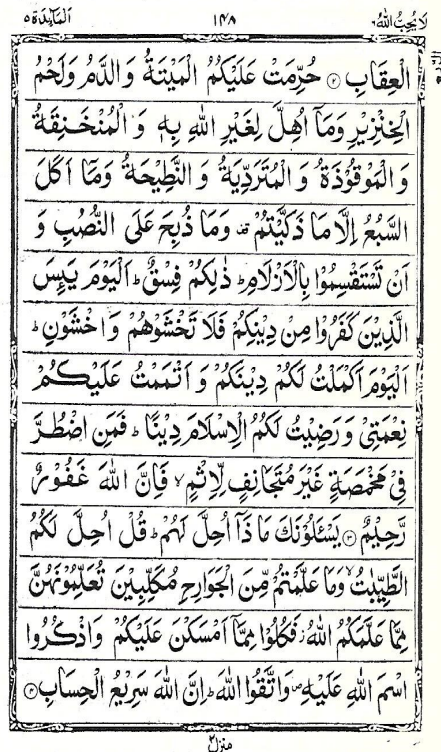 لَا يُحِبُّ اللّٰهُ ٦ ١٤٨ اَلْمَآئِدَة ٥
الْعِقَابِ ﴿٢﴾ حُرِّمَتْ عَلَيْكُمُ الْمَيْتَةُ وَالدَّمُ وَلَحْمُ
الْخِنْزِيْرِ وَمَاۤ اُهِلَّ لِغَيْرِ اللّٰهِ بِهٖ وَ الْمُنْخَنِقَةُ
وَ الْمَوْقُوْذَةُ وَ الْمُتَرَدِّيَةُ وَ النَّطِيْحَةُ وَمَاۤ اَكَلَ
السَّبُعُ اِلَّا مَا ذَكَّيْتُمْ ۟ وَمَا ذُبِحَ عَلَى النُّصُبِ وَ
اَنْ تَسْتَقْسِمُوْا بِالْاَزْلَامِ ؕ ذٰلِكُمْ فِسْقٌ ؕ اَلْيَوْمَ يَئِسَ
الَّذِيْنَ كَفَرُوْا مِنْ دِيْنِكُمْ فَلَا تَخْشَوْهُمْ وَاخْشَوْنِ ؕ
اَلْيَوْمَ اَكْمَلْتُ لَكُمْ دِيْنَكُمْ وَ اَتْمَمْتُ عَلَيْكُمْ
نِعْمَتِيْ وَرَضِيْتُ لَكُمُ الْاِسْلَامَ دِيْنًا ؕ فَمَنِ اضْطُرَّ
فِيْ مَخْمَصَةٍ غَيْرَ مُتَجَانِفٍ لِّاِثْمٍ ۙ فَاِنَّ اللّٰهَ غَفُوْرٌ
رَّحِيْمٌ ﴿٣﴾ يَسْـَٔلُوْنَكَ مَا ذَاۤ اُحِلَّ لَهُمْ ؕ قُلْ اُحِلَّ لَكُمُ
الطَّيِّبٰتُ ۙ وَمَا عَلَّمْتُمْ مِّنَ الْجَوَارِحِ مُكَلِّبِيْنَ تُعَلِّمُوْنَهُنَّ
مِمَّا عَلَّمَكُمُ اللّٰهُ ؗ فَكُلُوْا مِمَّاۤ اَمْسَكْنَ عَلَيْكُمْ وَاذْكُرُوا
اسْمَ اللّٰهِ عَلَيْهِ ۪ وَاتَّقُوا اللّٰهَ ؕ اِنَّ اللّٰهَ سَرِيْعُ الْحِسَابِ ﴿٤﴾
منزل ٢